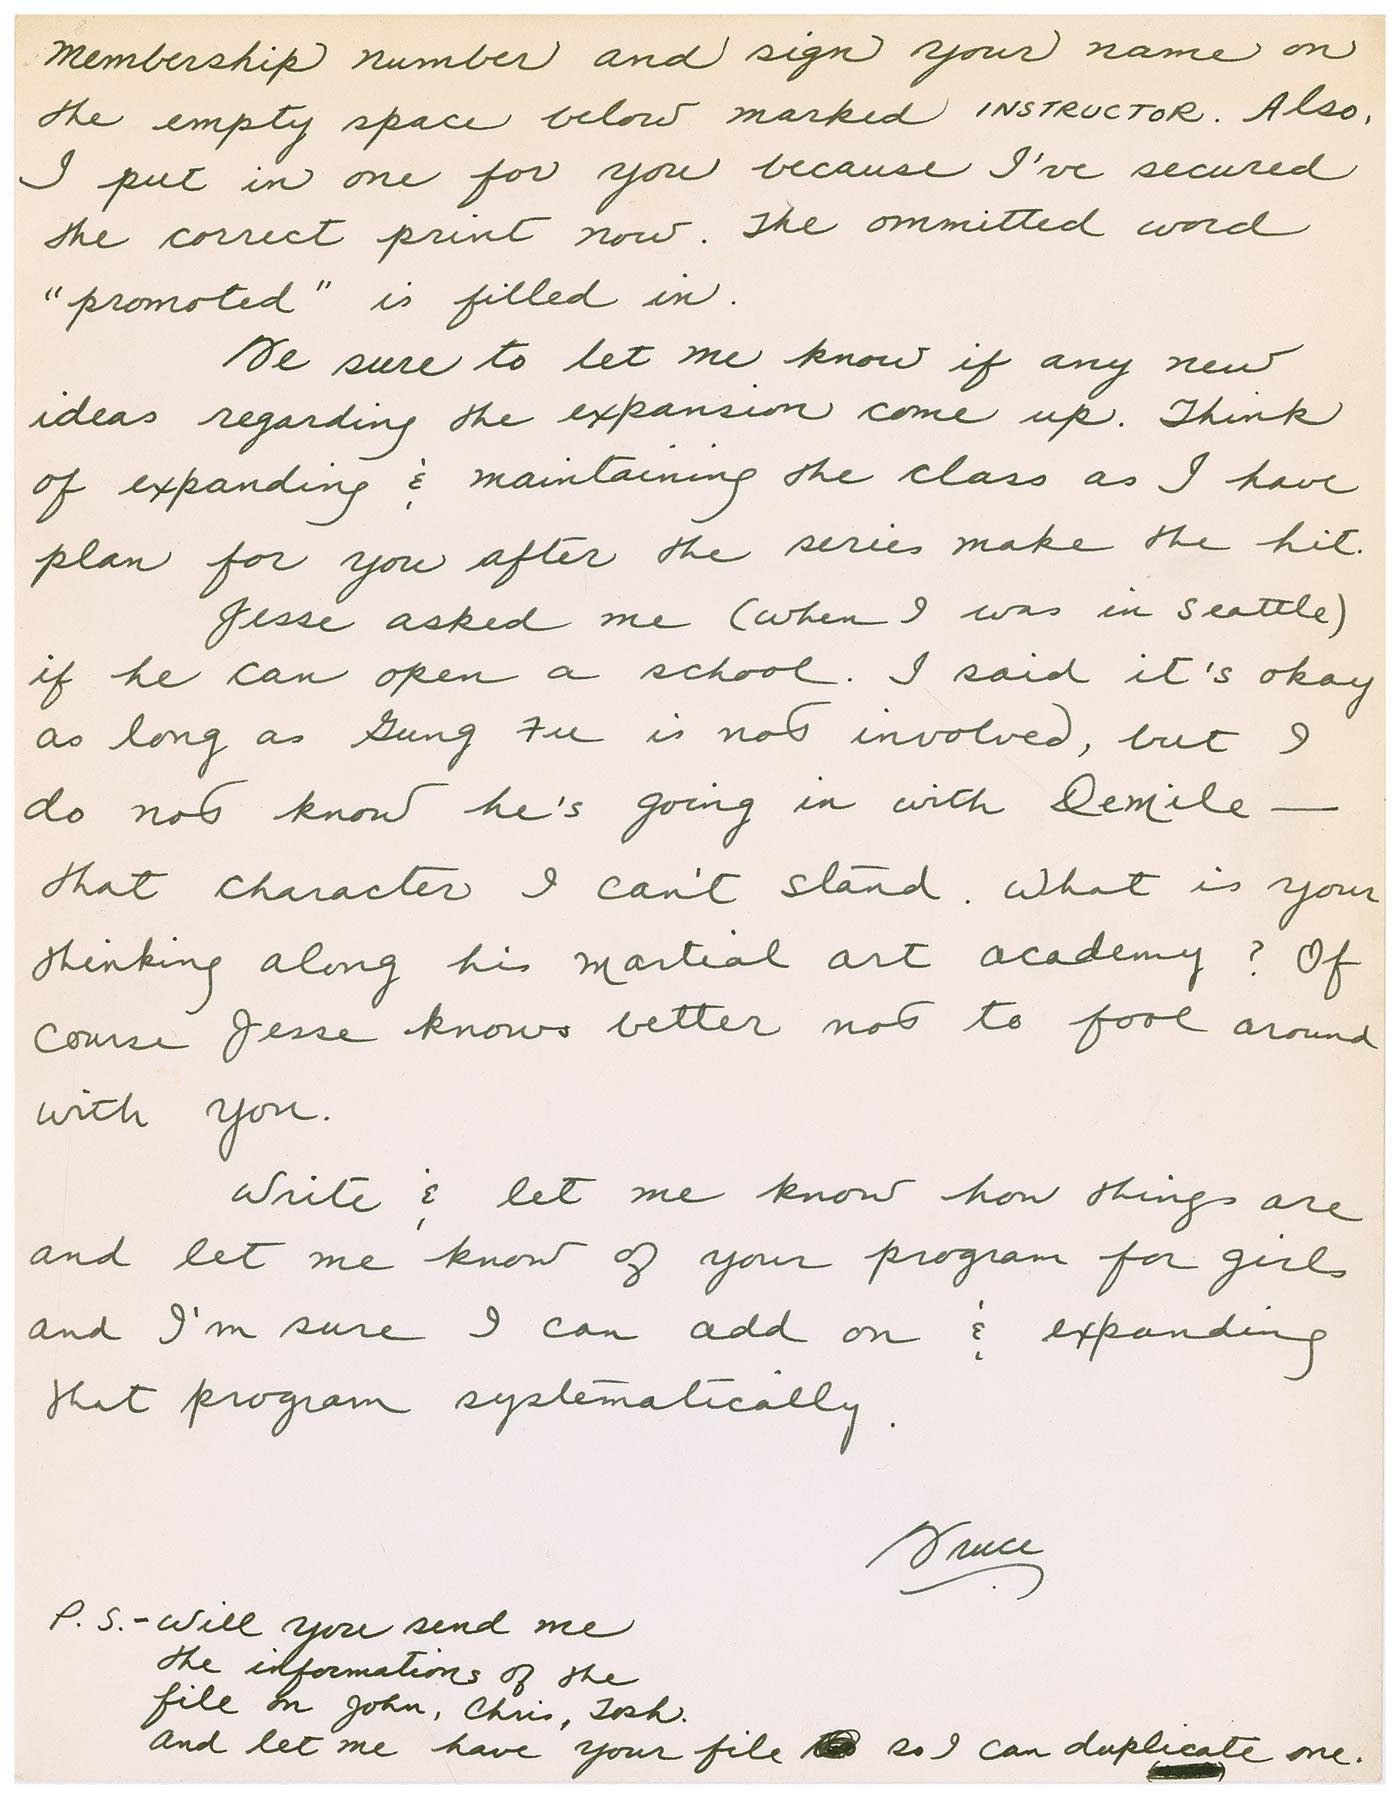 Membership number and sign your name on
the empty space below marked INSTRUCTOR. Also,
I put in one for you because I've secured
the correct print now. The ommitted word
"promoted" is filled in.
Be sure to let me know if any new
ideas regarding the expansion come up. Think
of expanding & maintaining the class as I have
plan for you after the series make the hit.
Jesse asked me (when I was in Seattle)
if he can open a school. I said it's okay
as long as Gung Fu is not involved, but I
do not know he's going in with DeMile —
that character I can't stand. What is your
thinking along his martial art academy? Of
course Jesse knows better not to fool around
with you.
Write & let me know how things are
and let me know of your program for girls
and I'm sure I can add on & expanding
that program systematically.
Bruce
P.S. - Will you send me
the informations of the
file on John, Chris, Tosh.
and let me have your file so I can duplicate one.